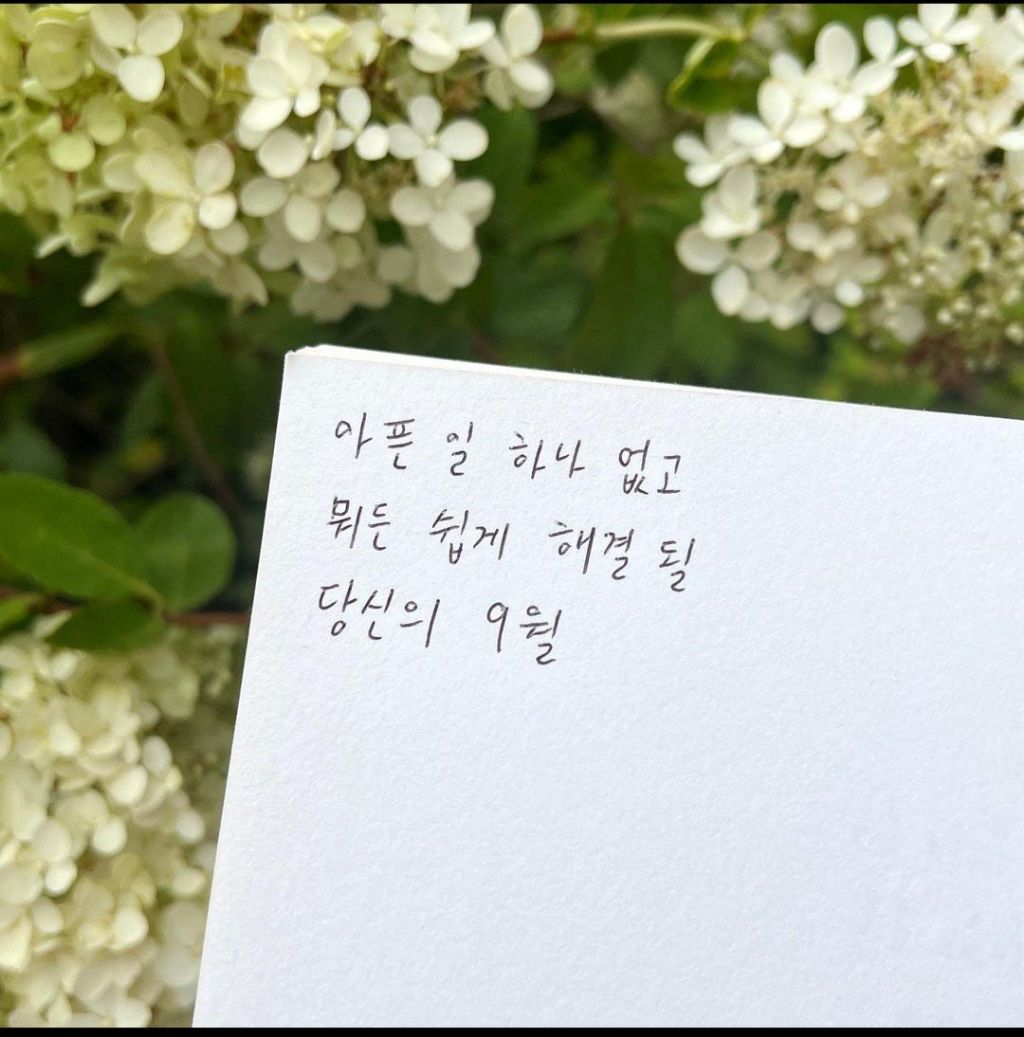 아픈 일 하나 없고
뭐든 쉽게 해결 될
당신의 9월